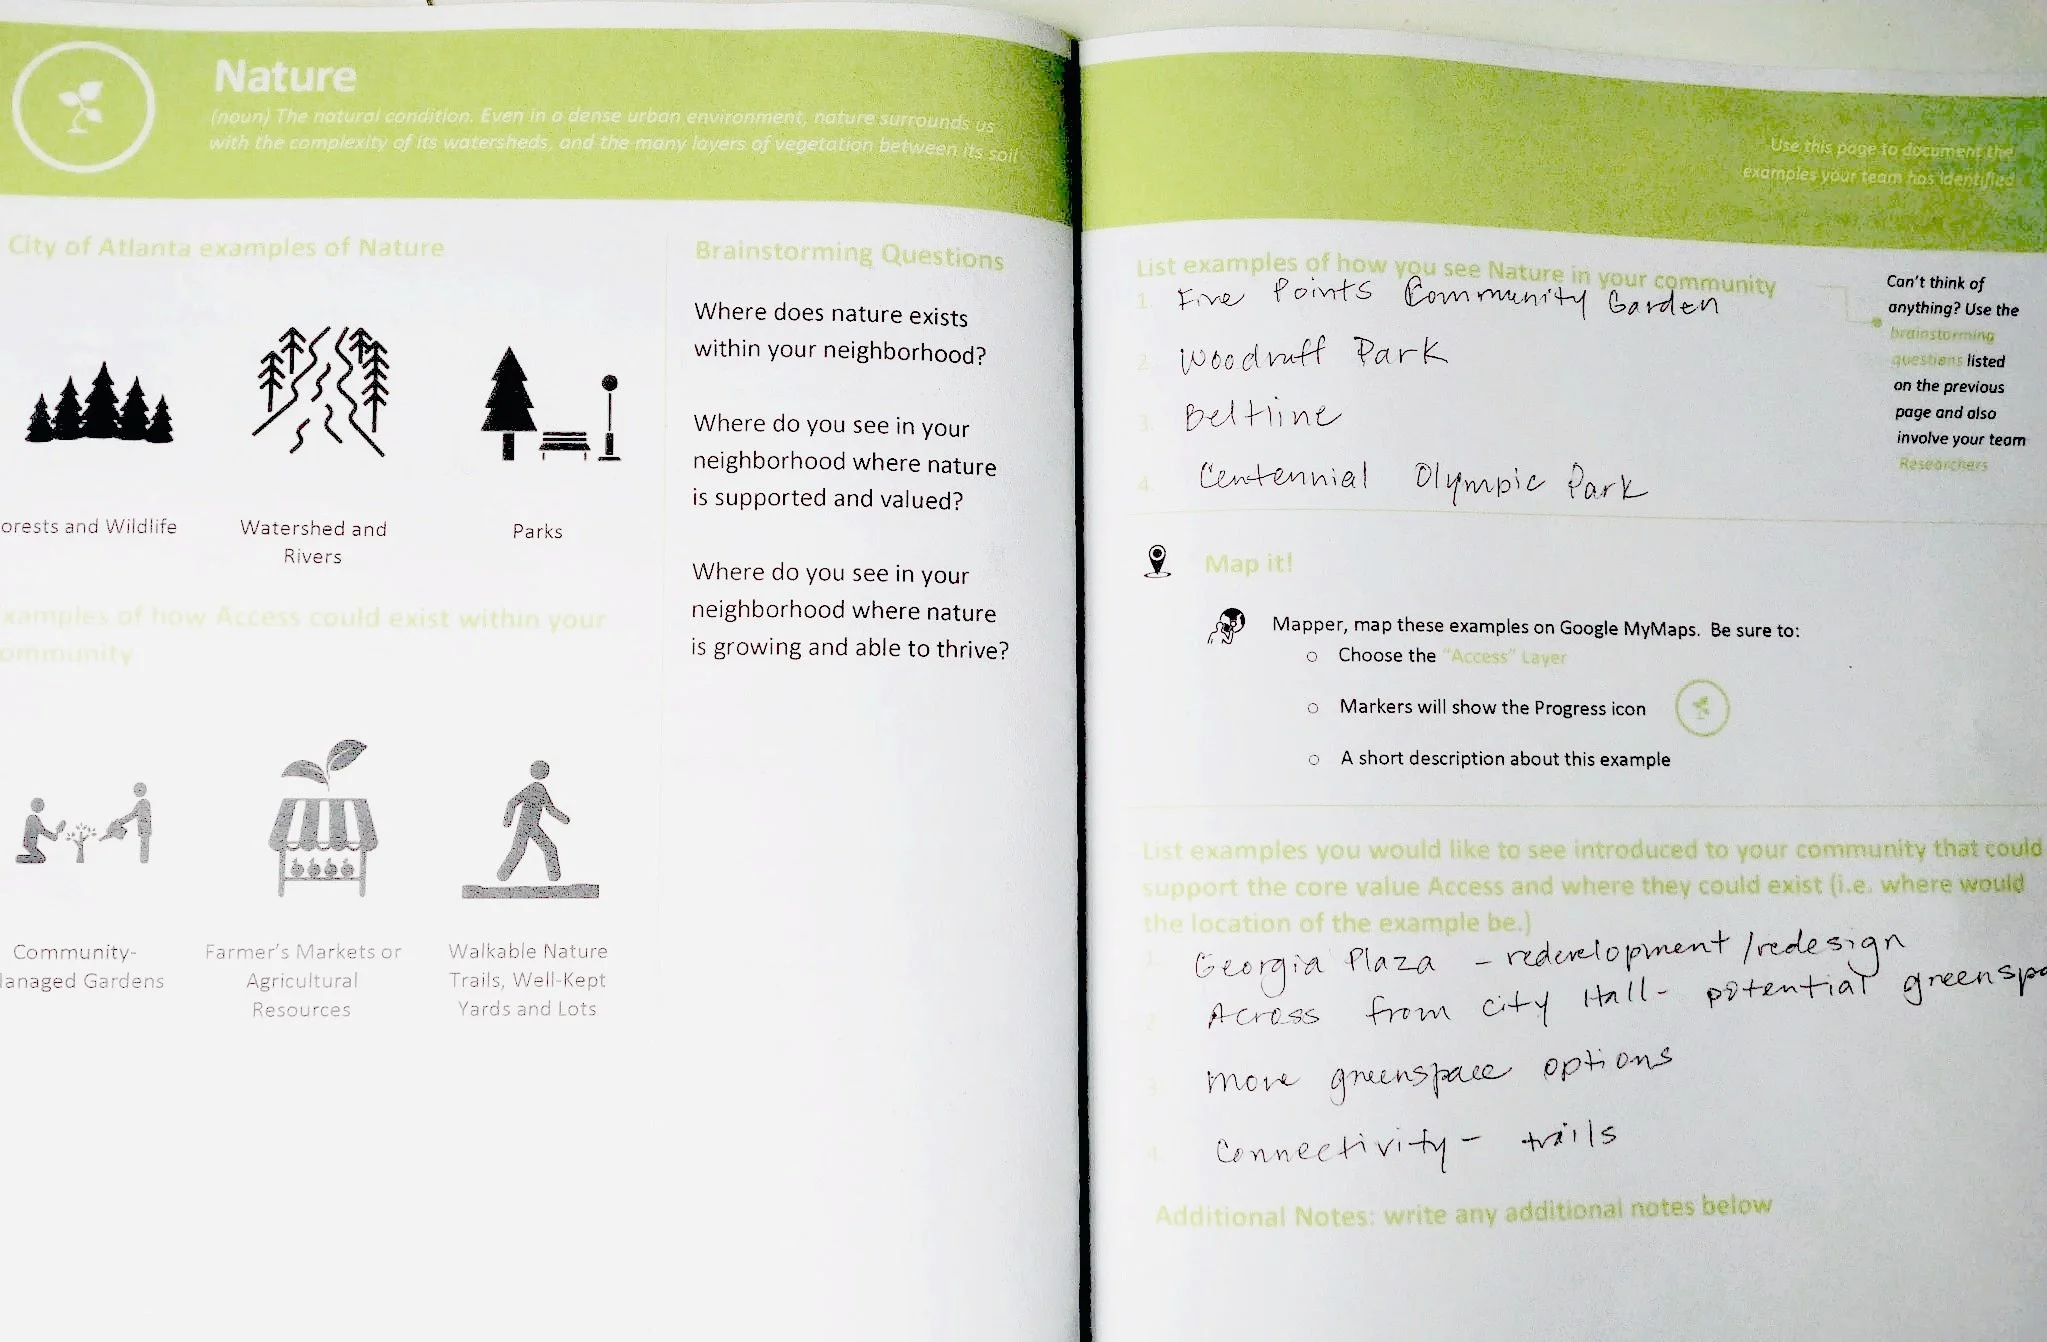 Nature
(noun) The natural condition. Even in a dense urban environment, nature surrounds us
with the complexity of its watersheds, and the many layers of vegetation between its soil
City of Atlanta examples of Nature
orests and Wildlife
Watershed and
Rivers
Parks
xamples of how Access could exist within your
ommunity
Community-
anaged Gardens
Farmer's Markets or
Agricultural
Resources
Walkable Nature
Trails, Well-Kept
Yards and Lots
Brainstorming Questions
Where does nature exists
within your neighborhood?
Where do you see in your
neighborhood where nature
is supported and valued?
Where do you see in your
neighborhood where nature
is growing and able to thrive?
Use this page to document the
examples your team has identified
List examples of how you see Nature in your community
1. Five Points Community Garden
2. Woodruff Park
3. Beltline
4. Centennial Olympic Park
Can't think of
anything? Use the
brainstorming
questions listed
on the previous
page and also
involve your team
Researchers
Map it!
Mapper, map these examples on Google MyMaps. Be sure to:
o Choose the "Access" Layer
o Markers will show the Progress icon
o A short description about this example
List examples you would like to see introduced to your community that could
support the core value Access and where they could exist (i.e. where would
the location of the example be.)
1. Georgia Plaza - redevelopment/redesign
2. Across from city Hall - potential greenspa
3. more greenspace options
4. Connectivity - trails
Additional Notes: write any additional notes below